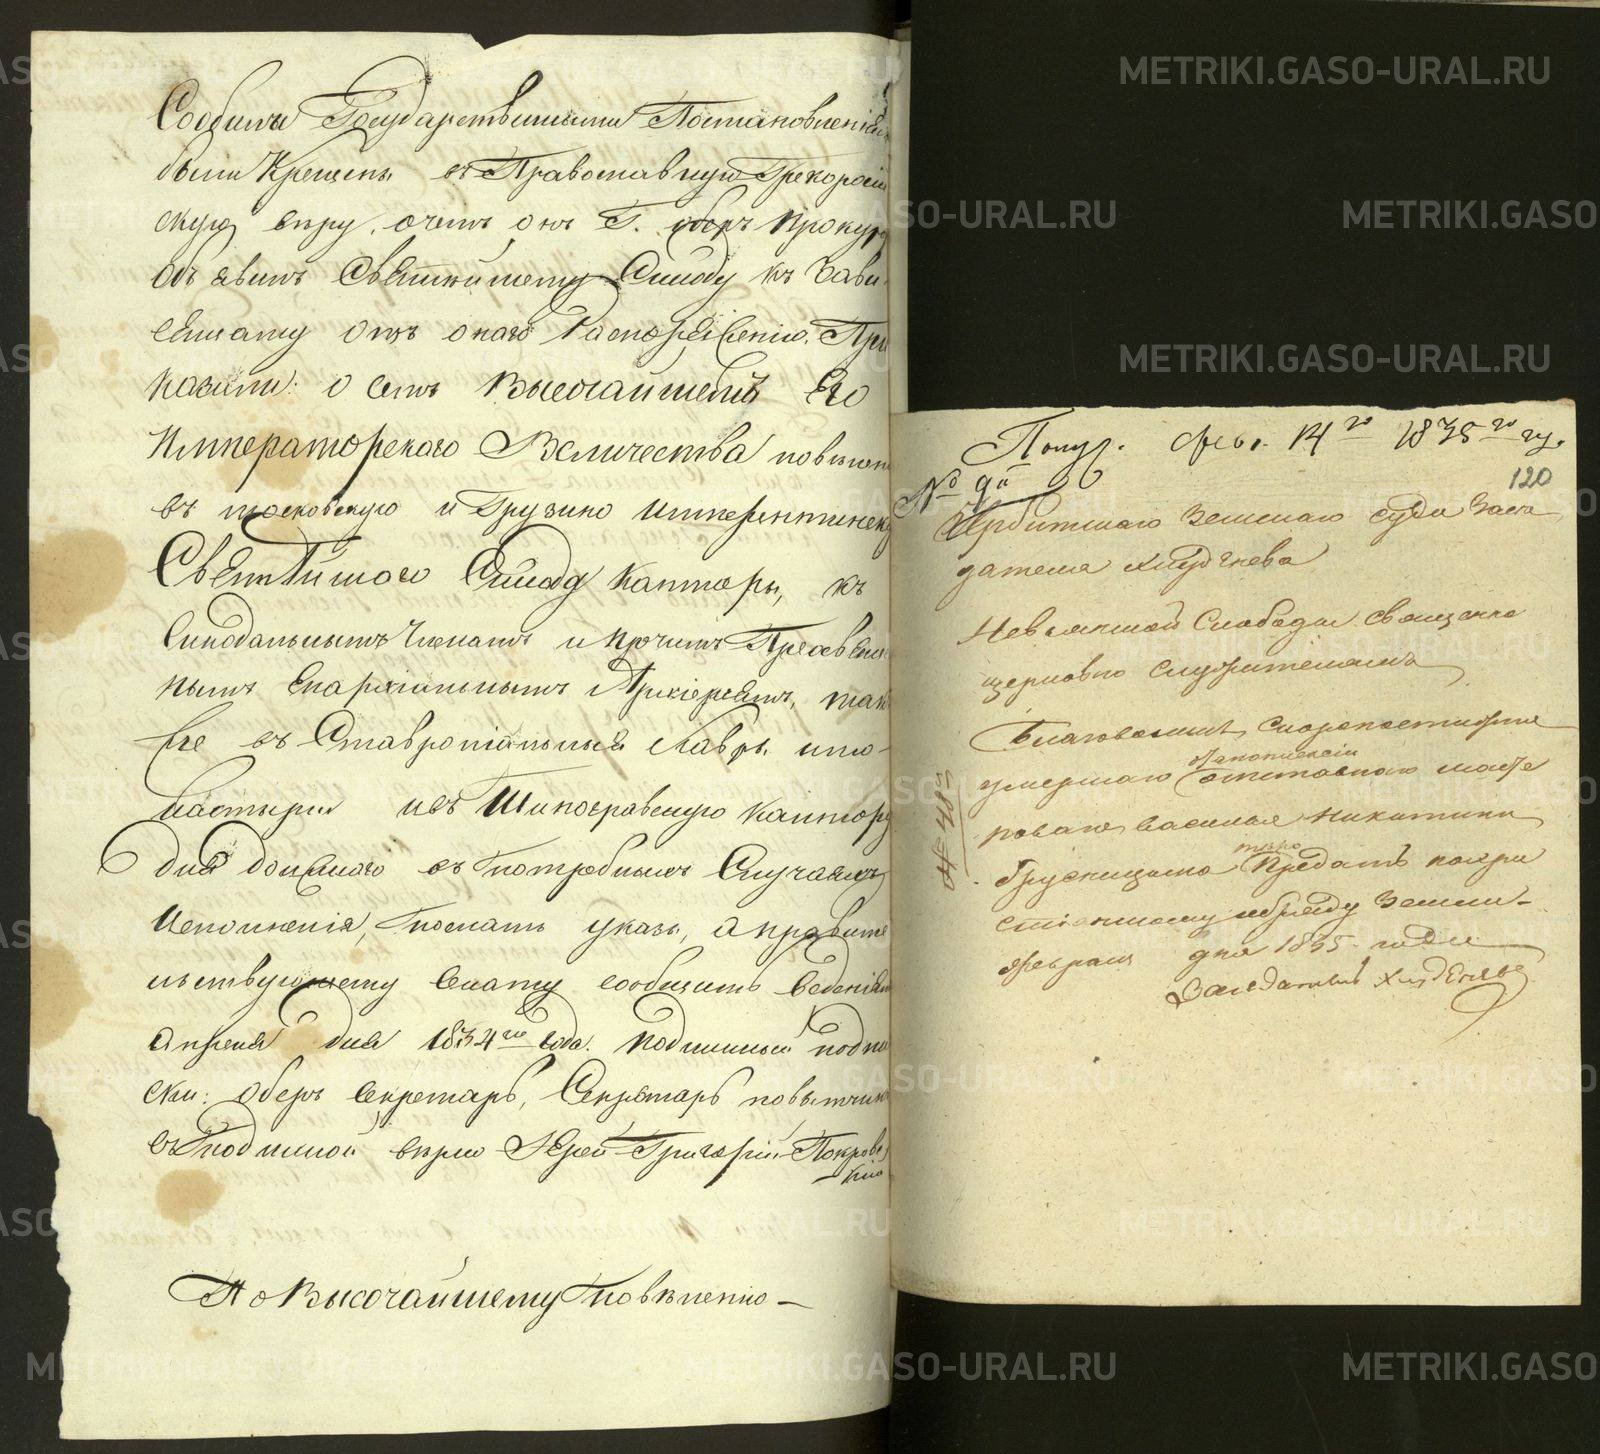 Особыми Государственными Постановленіями
были Крещены въ Православную Грекоросій
скую веру, о чемъ онъ Г. оберъ прокуро
объявилъ Святейшему Синоду къ зави
сящему отъ онаго Распоряженію. При
казали: о семъ Высочайшемъ Его
Императорскаго Величества повелен
въ московскую и Грузино Имперетинску
Святейшаго Синода канторы, къ
Синодальнымъ Членамъ и прочимъ Преосвящен
нымъ Епархіальнымъ Архіереямъ, так
же въ Ставропіальныя Лавры и мо
настыри изъ Типографскую кантору
для должнаго въ потребныхъ Случаяхъ
Исполненія, послать указы, а правите
льствующему Сенату сообщить веденія
апреля дня 1834го года. Подлинный подпи
ски: Оберъ Секретарь, Секретарь повытчик
съ подлинной верно Іерей Григорій Покровс
кій
По Высочайшему Повеленію —
Получ. фев. 14го 1835го г.
120
№ 9й
Ирбитскаго Земскаго суда Засе
дателя Хлудънева
Невьянской Слободы священно
церковно служителямъ
Благоволите скоропостижно
умершаго отставнаго масте
роваго Василья Никитина
тело
Предать похри
стіянскому обряду Земли —
февраля дня 1835 года
Заседатель
№ 483